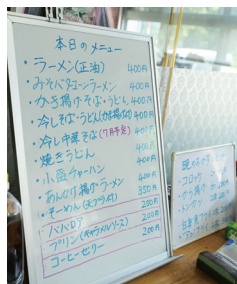 本日のメニュー
・ラーメン(正油) 400円
・みそバターコーンラーメン 400円
・かき揚げそば・うどん 400円
・冷しそば・うどん(かき揚げ付) 400円
・冷し中華そば(7月予定) 400円
・焼きうどん 400円
・小盛チャーハン 400円
・あんかけ揚げラーメン 400円
・そーめん(天プラ付) 350円
・ババロア 200円
・プリン(キャラメルソース) 200円
・コーヒーゼリー 200円
コロッケ
から揚げ